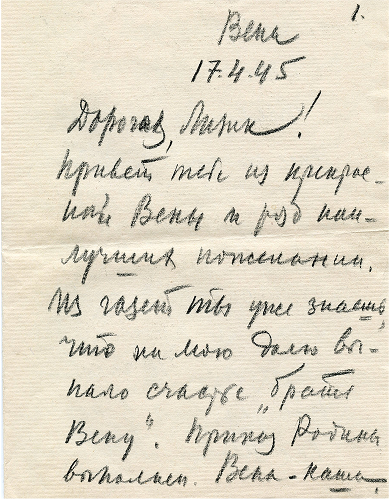 1.
Вена
17.4.45
Дорогая, Лирик!
Привет тебе из прекрас-
ной Вены и ряд наи-
лучших пожеланий.
Из газет ты уже знаешь,
что на мою долю вы-
пало счастье „брать
Вену". Приказ Родины
выполнен. Вена - наша